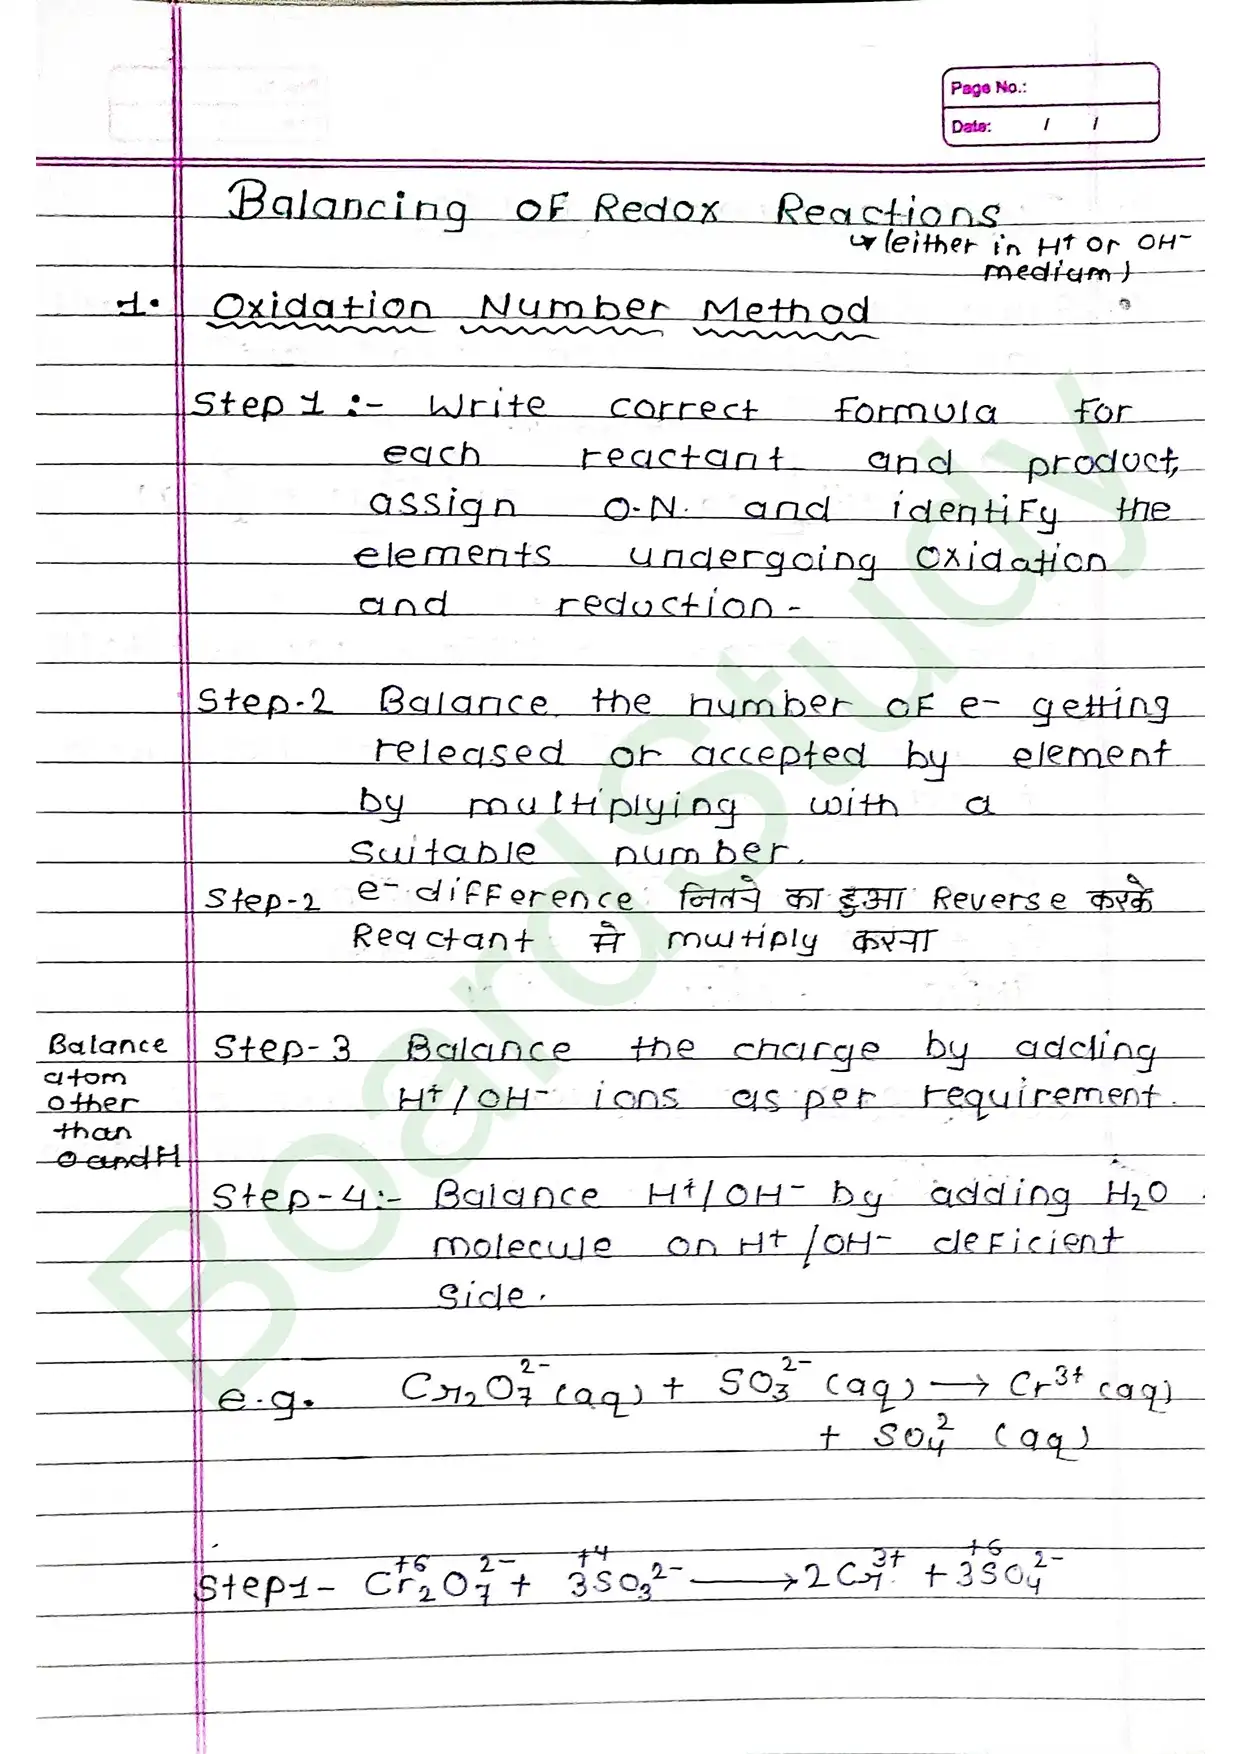 Page No.:
Date: / /
Balancing of Redox Reactions
(either in H⁺ or OH⁻
medium)
1. Oxidation Number Method
Step 1 :- Write correct formula for
each reactant and product,
assign O.N. and identify the
elements undergoing oxidation
and reduction-
Step-2 Balance the number of e- getting
released or accepted by element
by multiplying with a
suitable number.
Step-2 e- difference जितने का हुआ Reverse करके
Reactant से multiply करना
Balance
atom
other
than
O and H
Step-3 Balance the charge by adding
H⁺/OH⁻ ions as per requirement.
Step-4:- Balance H⁺/OH⁻ by adding H₂O
molecule on H⁺/OH⁻ deficient
side.
e.g. Cr₂O₇²⁻ (aq) + SO₃²⁻ (aq) → Cr³⁺ (aq)
+ SO₄² (aq)
+6 +4 +6
Step1- Cr₂O₇²⁻ + 3SO₃²⁻ → 2Cr³⁺ + 3SO₄²⁻
BoardStudy